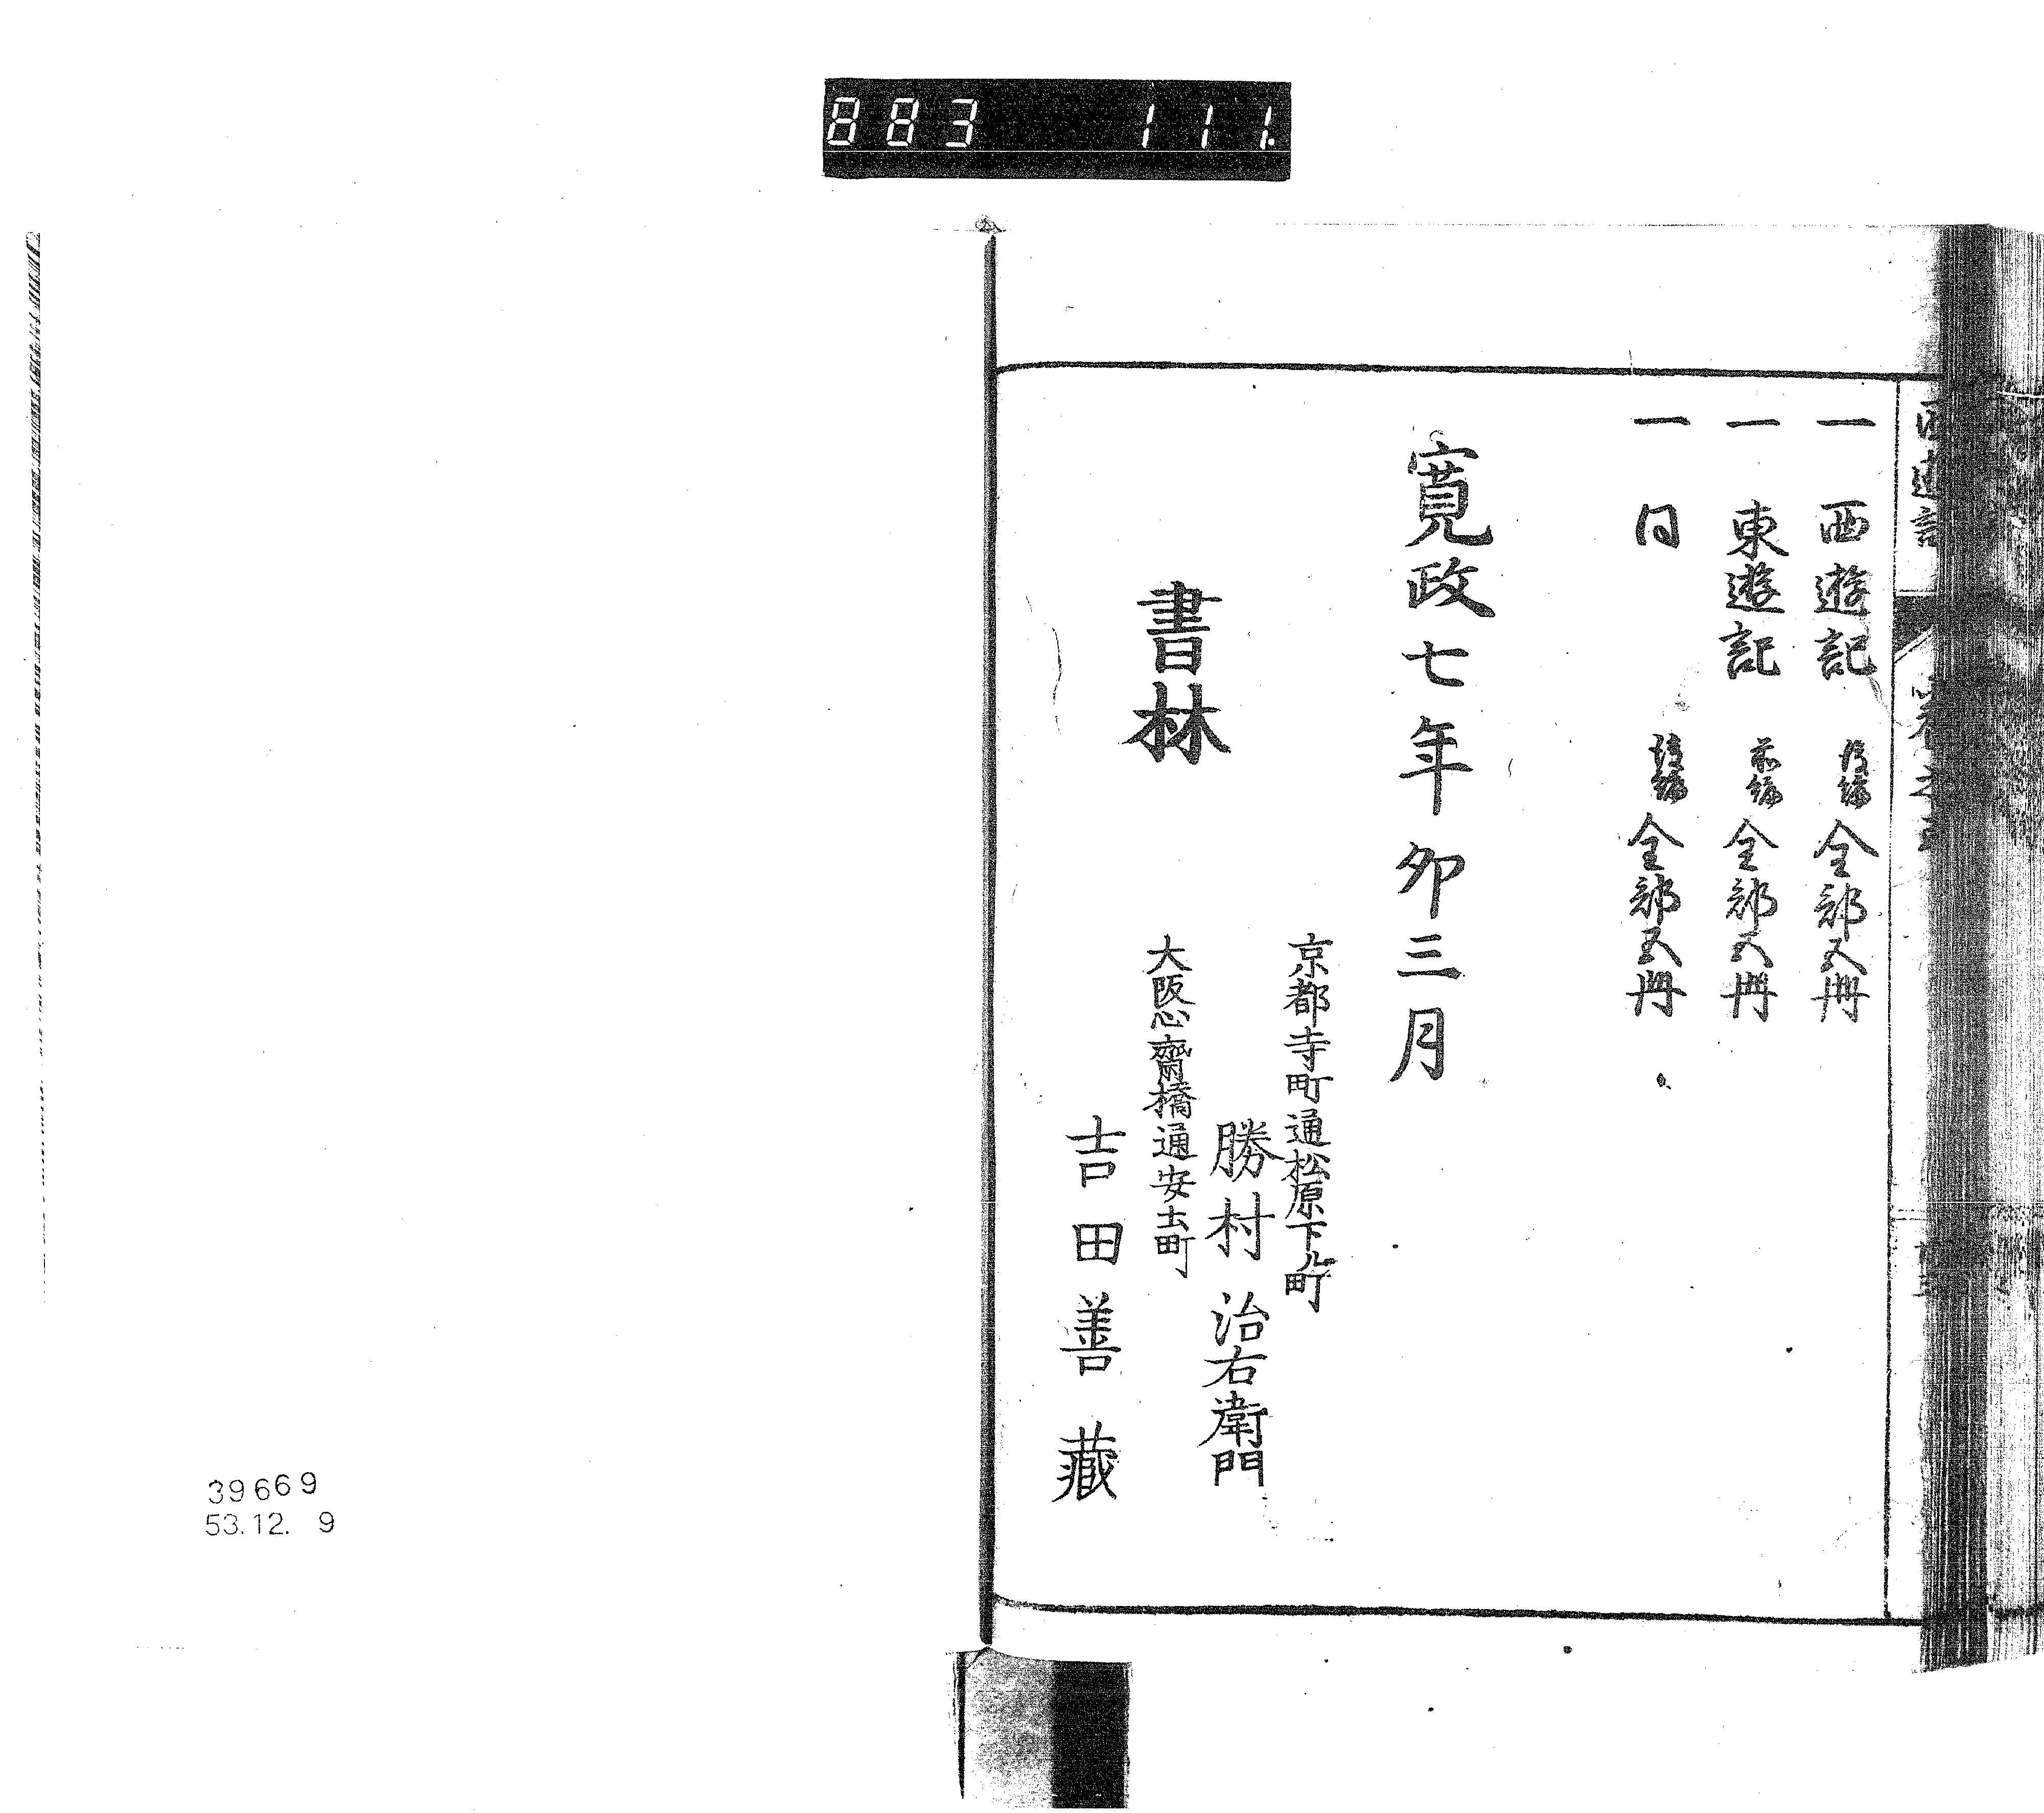 883 111.
西遊記
一 西遊記 後編 全部五冊
一 東遊記 前編 全部五冊
一 同 後編 全部五冊
寛政七年卯三月
書林
京都寺町通松原下ル町
勝村治右衛門
大阪心齋橋通安土町
吉田善藏
39669
53.12. 9